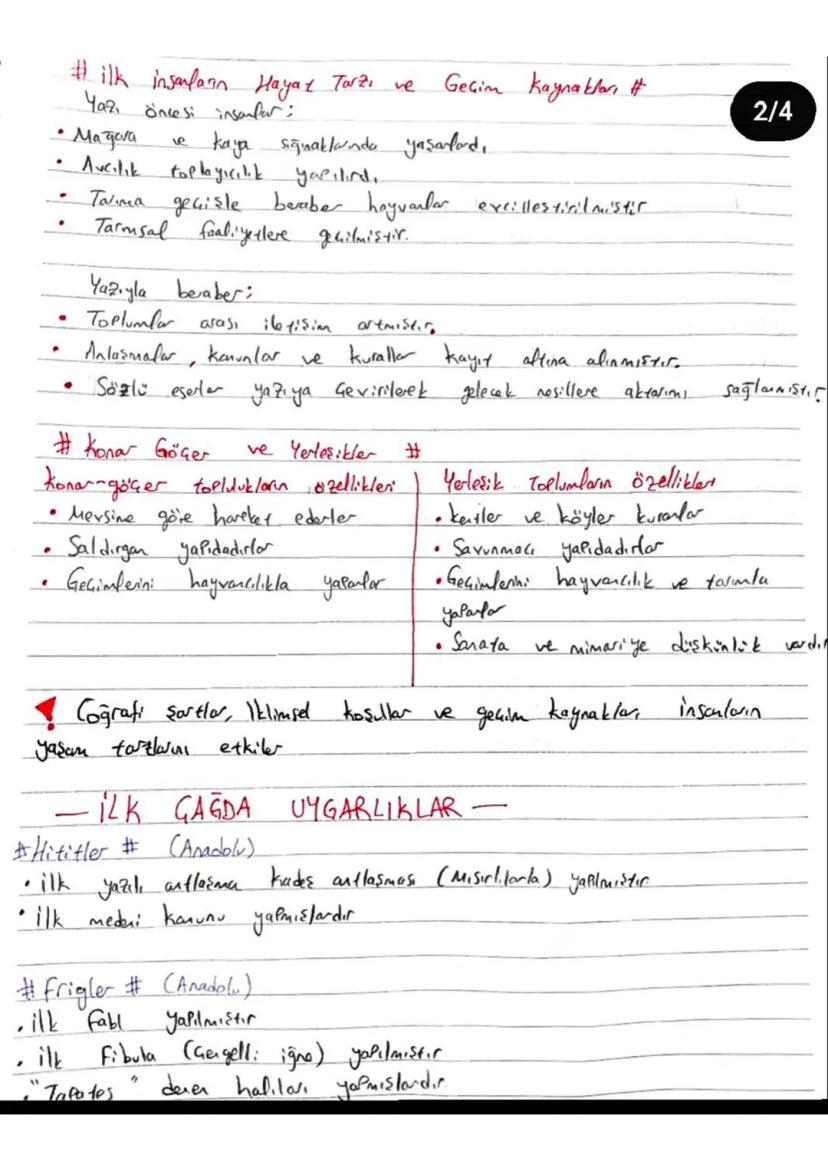 # ilk insanların Hayat Tarzı ve Geçim kaynakları #
2/4
Yazı öncesi insanlar;
• Mağara ve kaya sığınaklarında yaşarlardı
• Avcılık toplayıcılık yapılırdı
• Tarıma geçişle beraber hayvanlar evcilleştirilmiştir
• Tarımsal faaliyetlere geçilmiştir.
Yazıyla beraber;
• Toplumlar arası iletişim artmıştır.
• Anlaşmalar, kanunlar ve kurallar kayıt altına alınmıştır.
• Sözlü eserler yazıya çevirilerek gelecek nesillere aktarımı sağlanmıştır
# Konar Göçer ve Yerleşikler #
konar-göçer toplulukların özellikleri
• Mevsine göre hareket ederler
• Saldırgan yapıdadırlar
• Geçimlerini hayvancılıkla yaparlar
Yerleşik Toplumların özellikleri
• kentler ve köyler kurarlar
• Savunmacı yapıdadırlar
• Geçimlerini hayvancılık ve tarımla
yaparlar
• Sanata ve mimariye düşkünlük vardır
! Coğrafi şartlar, İklimsel koşullar ve geçim kaynakları insanların
yaşam tarzlarını etkiler
— İLK ÇAĞDA UYGARLIKLAR —
# Hititler # (Anadolu)
• ilk yazılı antlaşma kadeş antlaşması (Mısırlılarla) yapılmıştır
• ilk medeni kanunu yapmışlardır
# Frigler # (Anadolu)
• ilk Fabl yapılmıştır
• ilk Fibula (Çengelli iğne) yapılmıştır
• "Tapates" denen halıları yapmışlardır